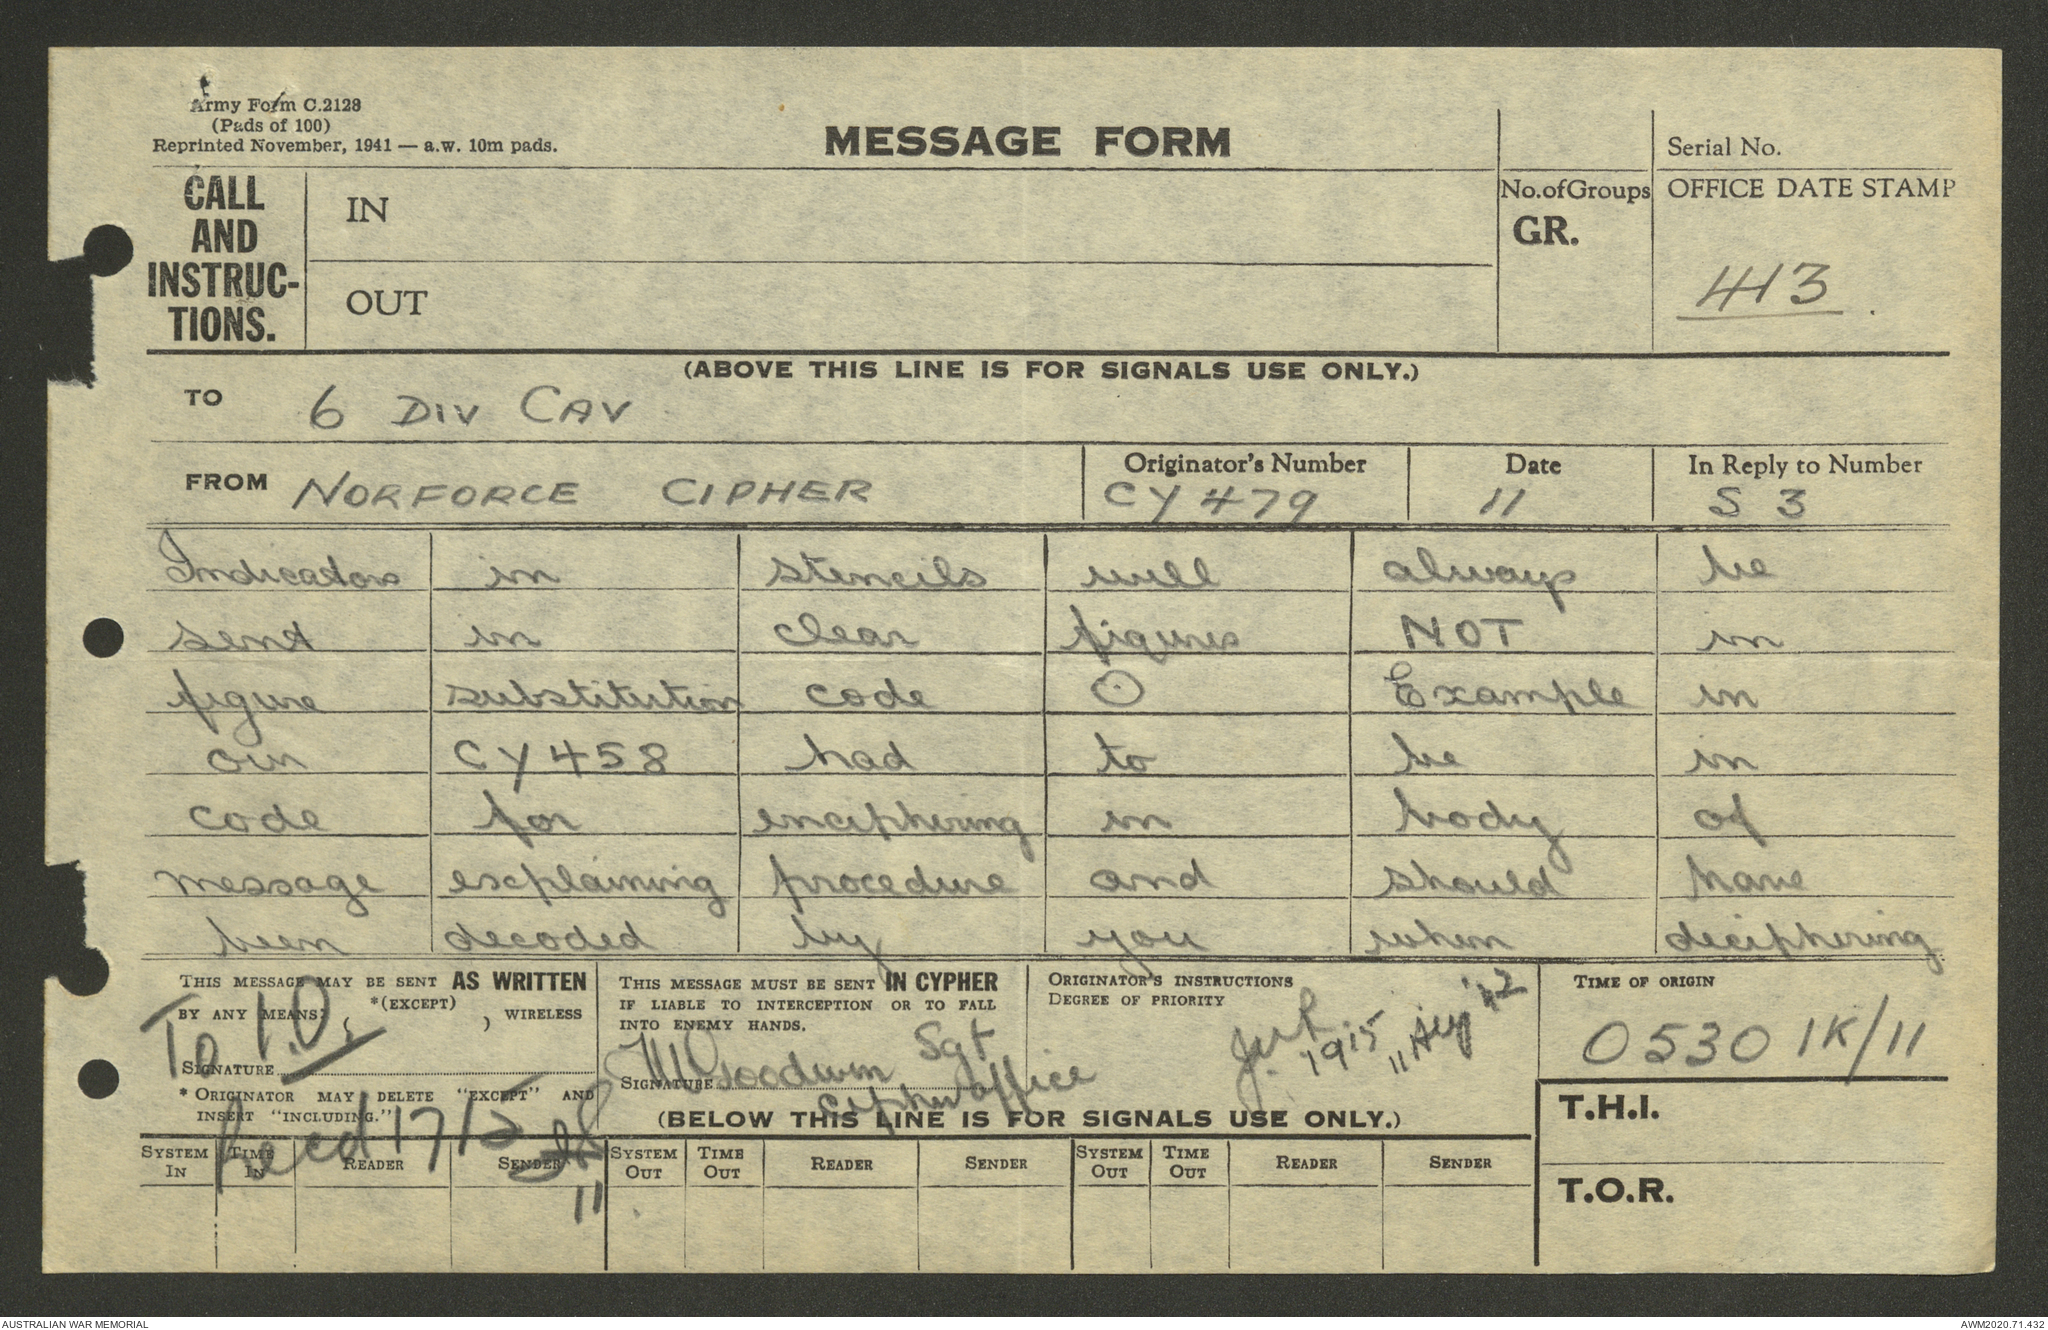 Army Form C.2128
(Pads of 100)
Reprinted November, 1941 — a.w. 10m pads.
MESSAGE FORM
Serial No.
CALL AND INSTRUC-TIONS.
IN
OUT
No. of Groups
GR.
OFFICE DATE STAMP
413
(ABOVE THIS LINE IS FOR SIGNALS USE ONLY.)
TO 6 DIV CAV
FROM NORFORCE CIPHER
Originator's Number CY 479
Date 11
In Reply to Number S 3
Indicators in stencils will always be
sent in clear figures NOT in
figure substitution code O Example in
our CY 458 had to be in
code for enciphering in body of
message explaining procedure and should have
been decoded by you when deciphering
THIS MESSAGE MAY BE SENT AS WRITTEN
BY ANY MEANS, *(EXCEPT) ( ) WIRELESS
To I.O.
SIGNATURE
* ORIGINATOR MAY DELETE "EXCEPT" AND
INSERT "INCLUDING."
Recd 1715
11
THIS MESSAGE MUST BE SENT IN CYPHER
IF LIABLE TO INTERCEPTION OR TO FALL
INTO ENEMY HANDS.
SIGNATURE Goodwin Sgt
Cipher office
ORIGINATOR'S INSTRUCTIONS
DEGREE OF PRIORITY
1915 11 Aug '42
TIME OF ORIGIN
0530 1K/11
(BELOW THIS LINE IS FOR SIGNALS USE ONLY.)
T.H.I.
SYSTEM IN TIME IN READER SENDER SYSTEM OUT TIME OUT READER SENDER SYSTEM OUT TIME OUT READER SENDER
T.O.R.
AUSTRALIAN WAR MEMORIAL
AWM2020.71.432